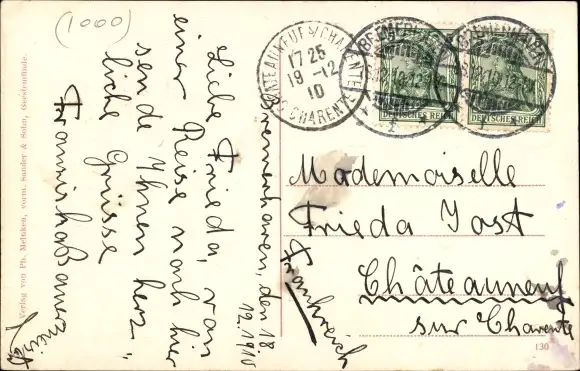 (1000)
Bremerhaven, den 18.
12.1910
Liebe Frieda, von
einer Reise nach hier
sende Ihnen herz"
liche Grüsse
Mademoiselle
Frieda Jost
Châteauneuf
sur Charente
Frankreich
CHATEAUNEUF S/CHARENTE
17 25
19 -12
10
CHARENTE
BREMERHAVEN
DEUTSCHES REICH
BREMERHAVEN
DEUTSCHES REICH
Verlag von Ph. Metsken, vorm. Sander & Sohn, Geestemünde.
130